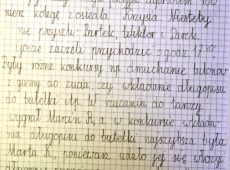 nież kolegę
nie przyszli: Bartek, Wiktor i Darek.
Goście zaczęli przychodzić o godz. 17³⁰.
Były różne konkursy np. dmuchanie balonów
z gumy do żucia czy wkładanie długopisu
do butelki itp. W rzucaniu do tarczy
wygrał Marcin R., a w konkursie wkłada-
nia długopisu do butelki najszybsza była
Marta K., ponieważ udało jej się włożyć